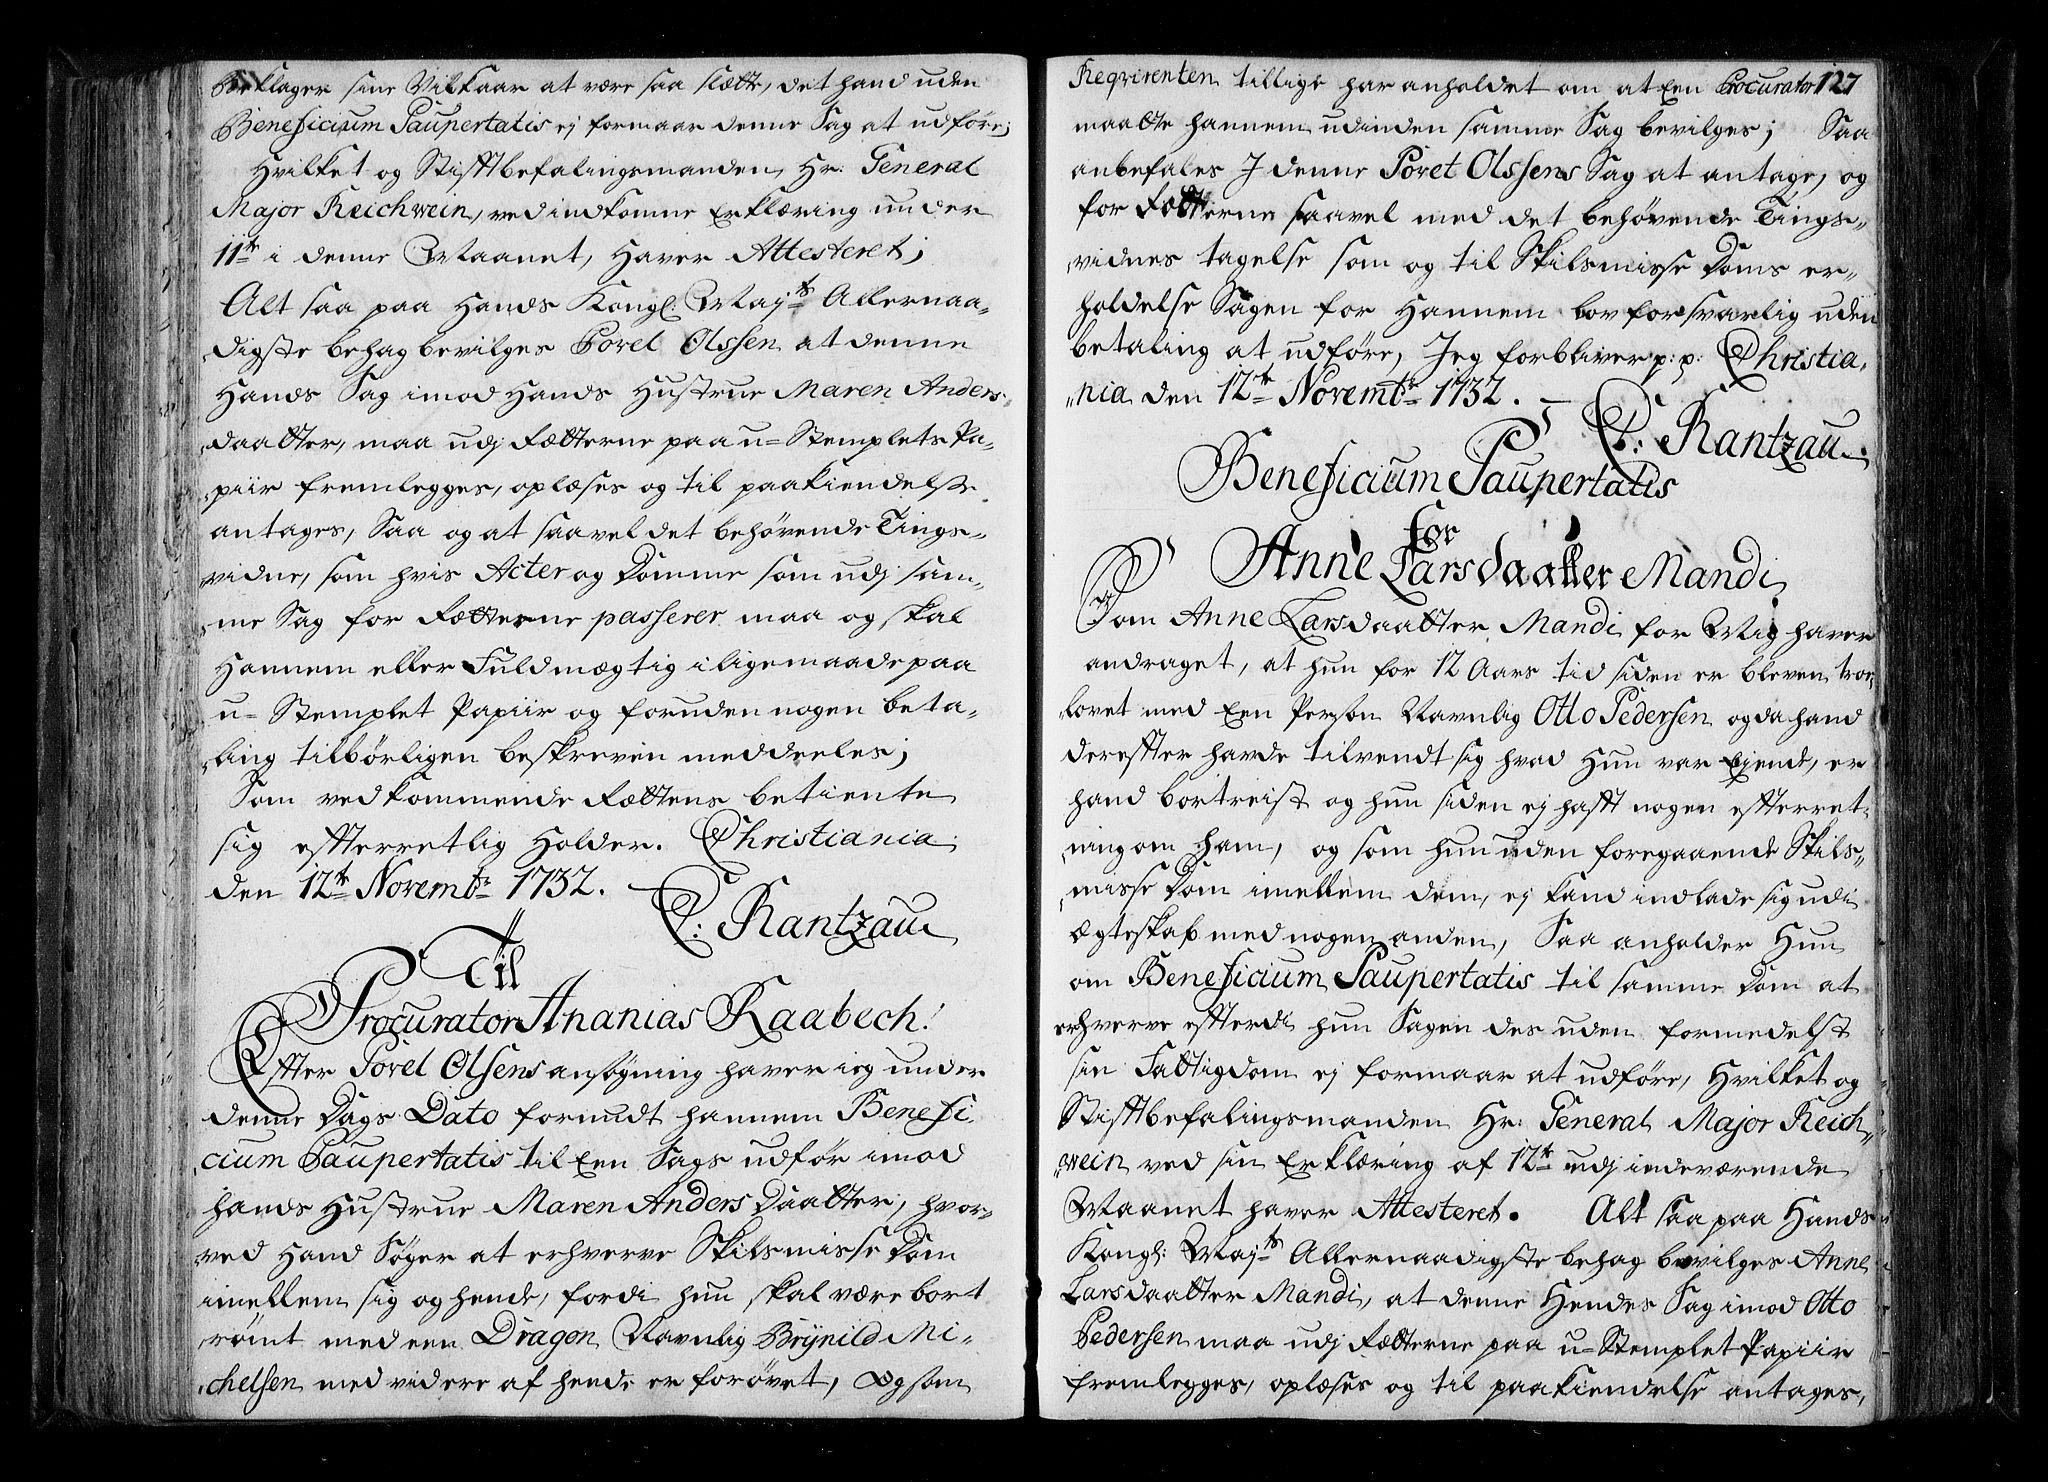 Beklager sine Vilkaar at være saa slette, det hand uden
Beneficium Paupertatis ej formaar denne Sag at udføre;
Hvilket og Stifftbefalingsmanden, Hr: General
Major Reichwein, ved indkomne Erklæring under
11te i denne Maanet, Haver Attesteret;
Alt saa paa Hands Kongl. Majts Allernaa-
digste behag bevilges Povel Olssen at denne
Hands Sag imod Hands Hustrue Maren Anders-
daatter, maa udj Rætterne paa u-Stemplet Pa-
piir fremlegges, oplæses og til paakiendelse
antages, Saa og at saavel det behøvende Tings-
vidne, som hvis Acter og Domme som udj sam-
me Sag for Rætterne passerer maa og skal
Hannem eller Fuldmægtig i lige maade paa
u-Stemplet Papiir og foruden nogen beta-
ling tilbørligen beskreven meddeeles;
Som vedkommende Rættens betiente
sig efterretlig Holder. Christiania
den 12te Novembr 1732.
C: Rantzau
Til
Procurator Ananias Raabech!
Efter Povel Olsens ansøgning haver ieg under
denne Dags Dato forundt hannem Benefi-
cium Paupertatis til Een Sags udfør imod
hands Hustrue Maren Anders Daatter, hvor-
ved Hand Søger at erhverve Skilsmisse Dom
imellem sig og hende, fordi hun skal være bort
rømt med een Dragon Navnlig Brÿnild Mi-
chelsen med videre af hende er forøvet, Og som
Reqvirenten tillige har anholdet om at Een Procurator 127
maatte hannem udinden samme Sag bevilges; Saa
anbefales I denne Povel Olssens Sag at antage, og
for Rætterne saavel med det behøvende Tings-
vidnes tagelse som og til Skilsmisse Doms er-
holdelse Sagen for Hannem lovforsvarlig uden
betaling at udføre, Jeg forbliver p: p: Christia-
nia den 12te Novembr 1732.
C: Rantzau
Beneficium Paupertatis
for
Anne Larsdaatter Mandi
Som Anne Larsdaatter Mandi for Mig haver
andraget, at hun for 12 Aars tid siden er bleven troe
lovet med Een Person Navnlig Otto Pedersen og da hand
derefter havde tilvendt sig hvad Hun var Ejende, er
hand bortreist og hun siden ej hafft nogen efterret-
ning om ham, og som hun uden foregaaende Skils-
misse Dom imellem dem, ej kand indlade sig udi
ægteskab med nogen anden, Saa anholder Hun
om Beneficium Paupertatis til samme Dom at
erhverve efterdi hun Sagen des uden formedelst
sin Fattigdom ej formaar at udføre, Hvilket og
Stifftbefalingsmanden Hr: General Major Reich-
wein ved sin Erklæring af 12te udj indeværende
Maanet haver Attesteret. Alt saa paa Hands
Kongl: Majts Allernaadigste behag bevilges Anne
Larsdaatter Mandi, at denne Hendes Sag imod Otto
Pedersen maa udj Rætterne paa u-Stemplet Papiir
fremlegges, oplæses og til paakiendelse antages,